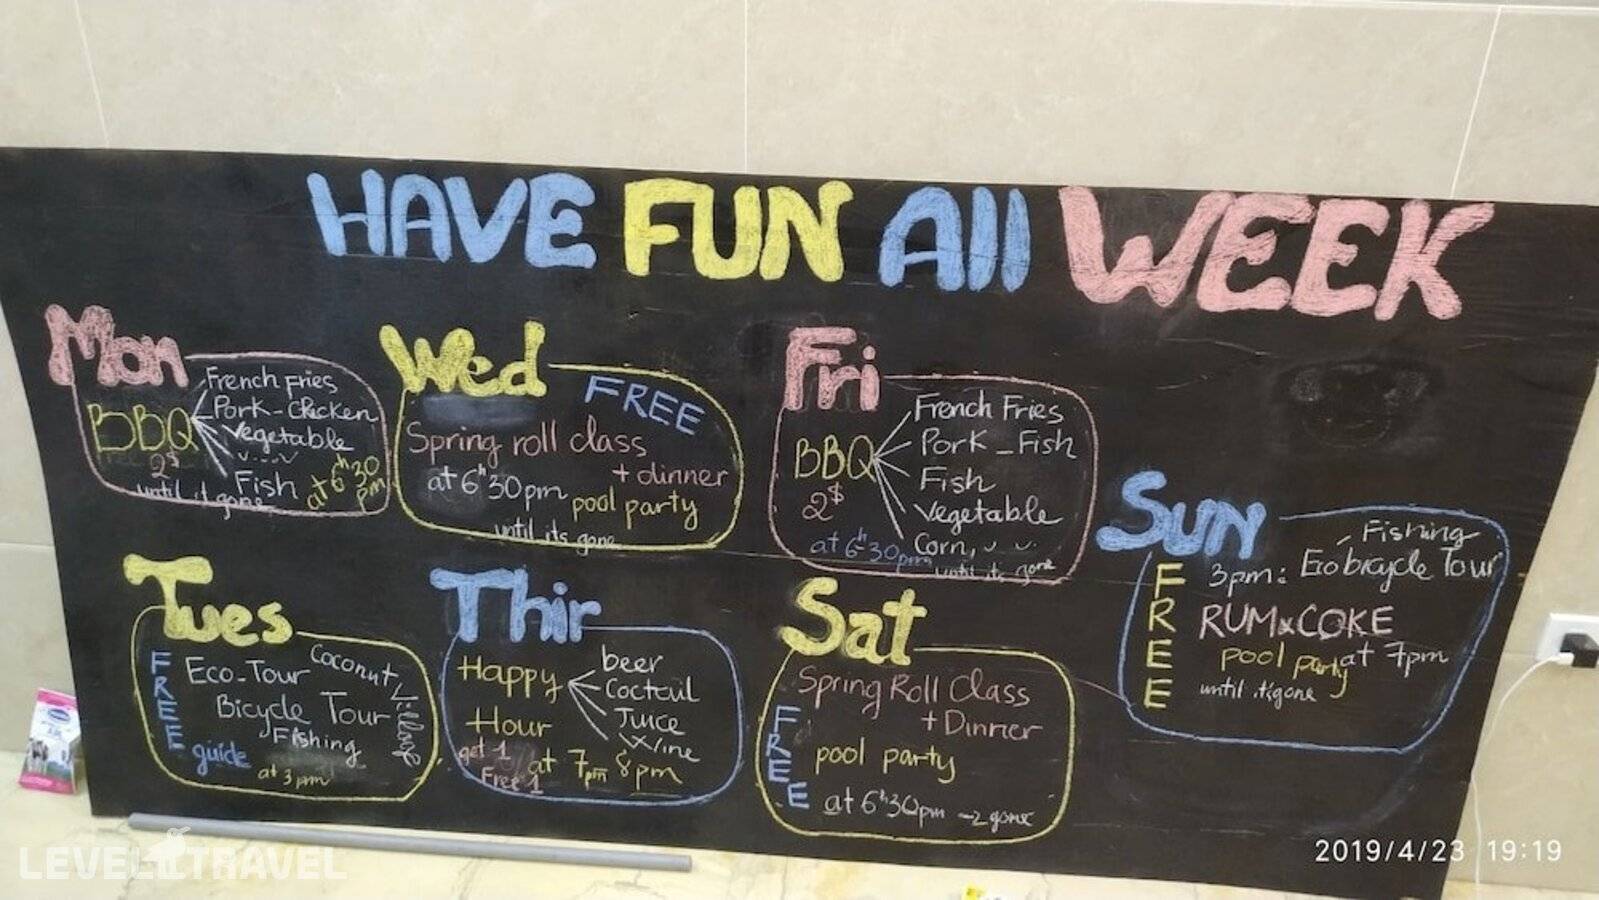 HAVE FUN All WEEK
Mon
BBQ
2$
French Fries
Pork-Chicken
Vegetable
Fish
at 6h30 pm
until it gone
Wed
FREE
Spring roll class
+ dinner
at 6h30pm
pool party
until its gone
Fri
BBQ
2$
French Fries
Pork-Fish
Fish
Vegetable
Corn,
at 6h30pm
until its gone
Sun
FREE
Fishing
3pm: Ecobicycle Tour
RUM&COKE
pool party at 7pm
until its gone
Tues
FREE
Eco-Tour
Coconut Village
Bicycle Tour
Fishing
guide
at 3pm
Thir
Happy
Hour
beer
Coctail
Juice
Wine
get 1
Free 1
at 7pm 8pm
Sat
Spring Roll Class
+ Dinner
FREE
pool party
at 6h30pm -2 gone
2019/4/23 19:19
LEVEL TRAVEL